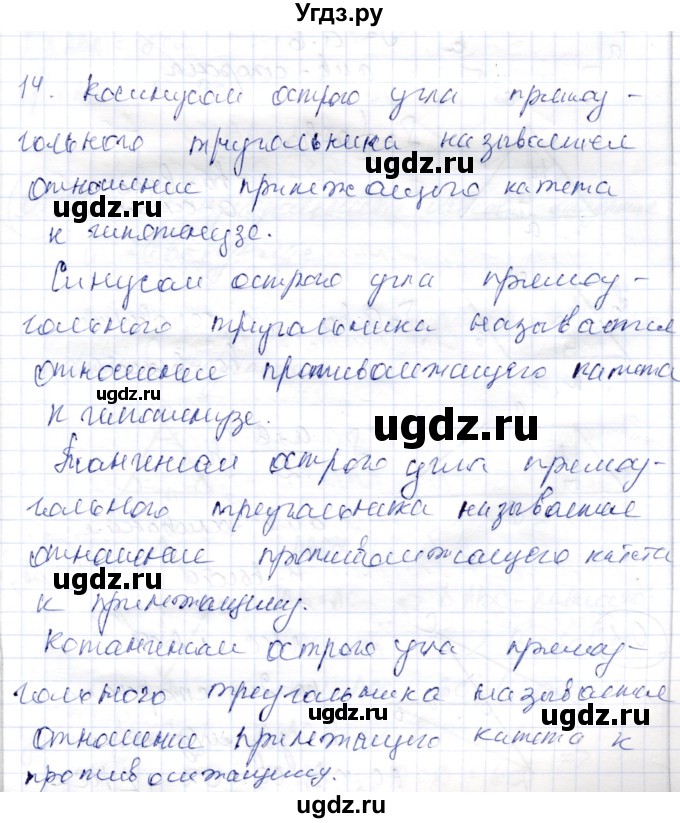 Угдз.ру
14. Косинусом острого угла прямоу-
гольного треугольника называется
отношение прилежащего катета
к гипотенузе.
Синусом острого угла прямоу-
гольного треугольника называется
отношение противолежащего катета
к гипотенузе.
Тангенсом острого угла прямоу-
гольного треугольника называется
отношение противолежащего катета
к прилежащему.
Котангенсом острого угла прямоу-
гольного треугольника называется
отношение прилежащего катета к
противолежащему.
ugdz.ru
ugdz.ru
ugdz.ru
ugdz.ru
ugdz.ru
ugdz.ru
ugdz.ru
ugdz.ru
ugdz.ru
ugdz.ru
ugdz.ru